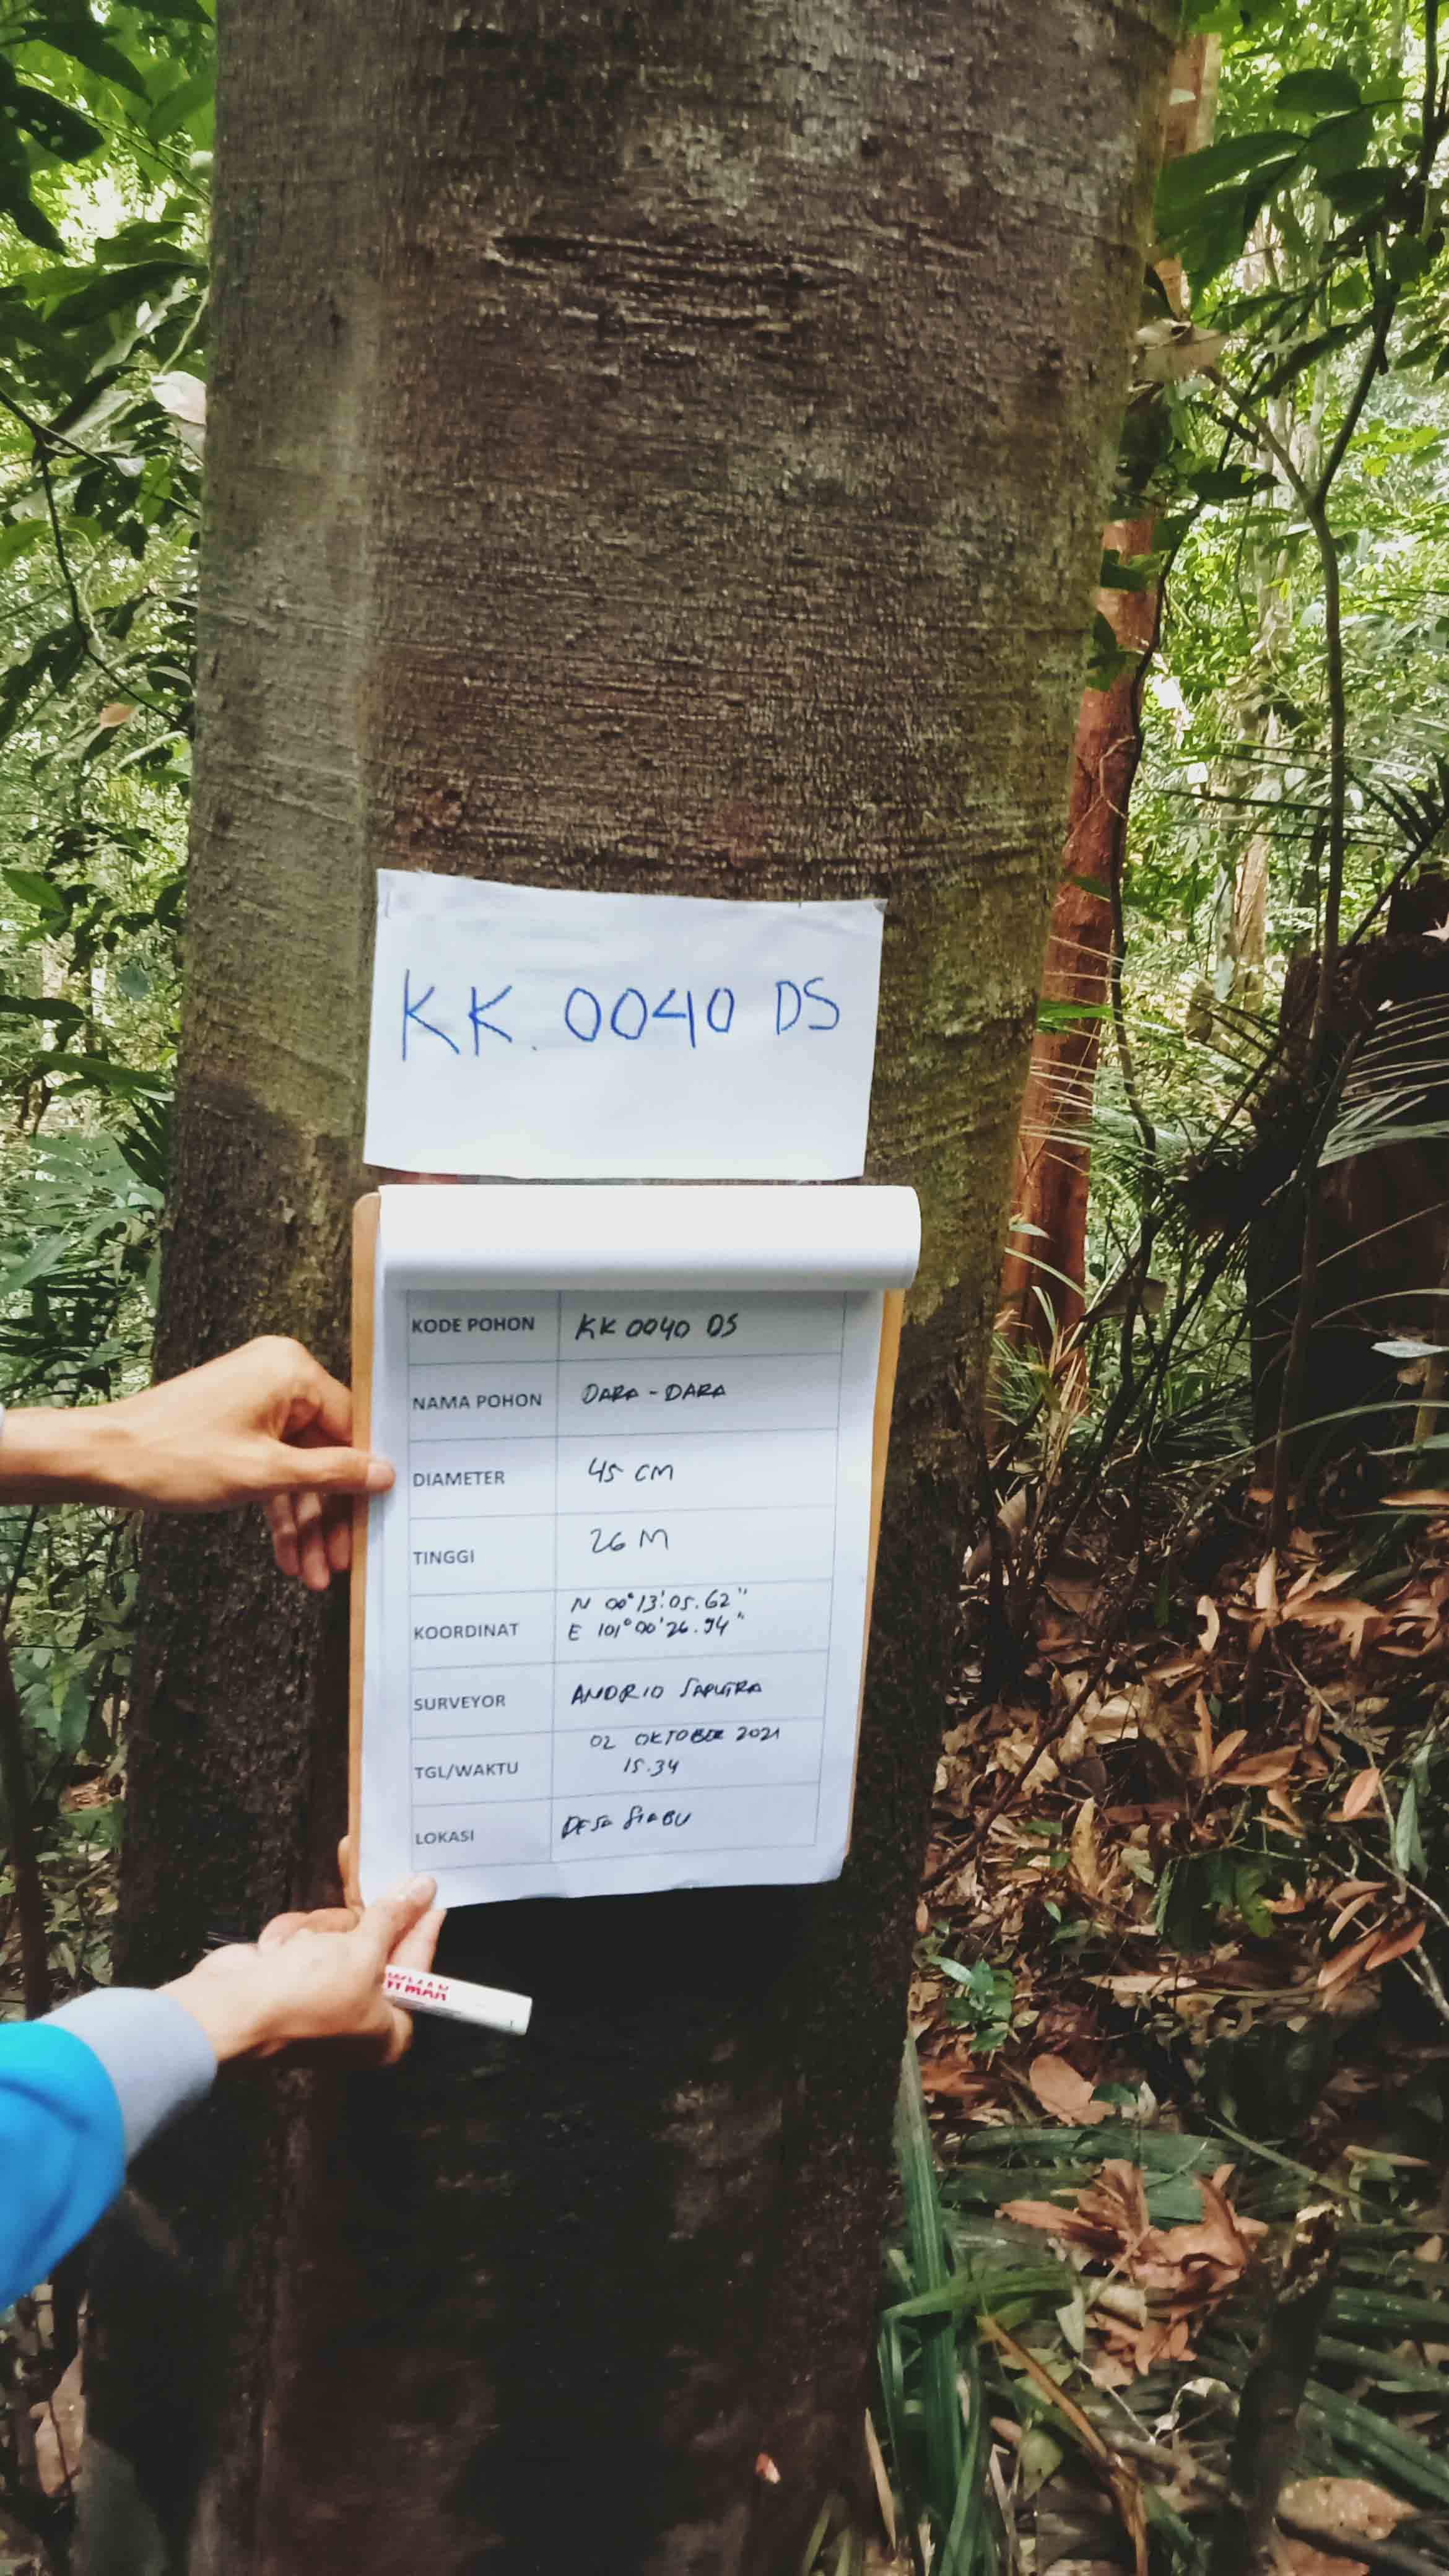 KK. 0040 DS
KODE POHON KK 0040 DS
NAMA POHON DARA - DARA
DIAMETER 45 CM
TINGGI 26 M
KOORDINAT N 00°13'.05.62"
E 101°00'26.94"
SURVEYOR ANDRIO SAPUTRA
TGL/WAKTU 02 OKTOBER 2021
15.34
LOKASI DESA SIABU